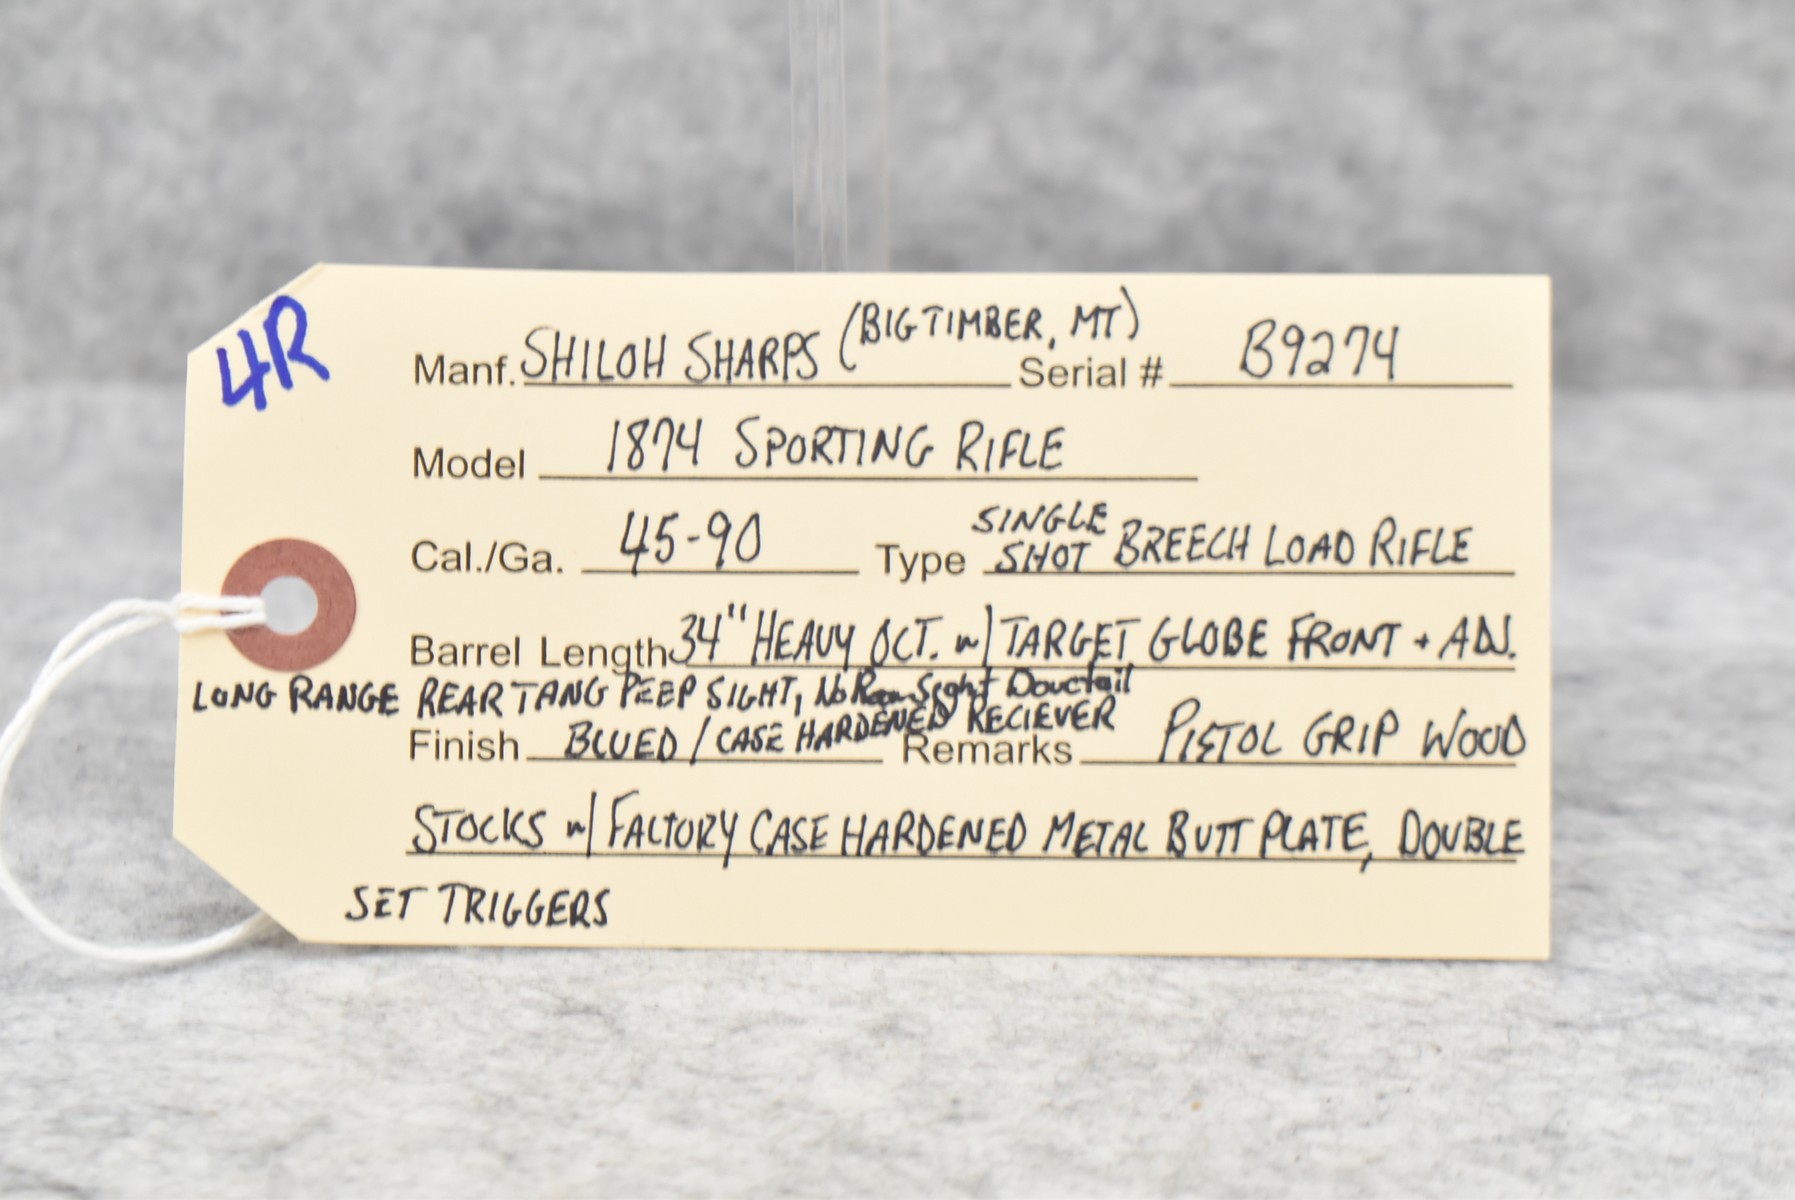 4R
Manf. SHILOH SHARPS (BIG TIMBER, MT) Serial # B9274
Model 1874 SPORTING RIFLE
Cal./Ga. 45-90 Type SINGLE SHOT BREECH LOAD RIFLE
Barrel Length 34" HEAVY OCT. w/ TARGET GLOBE FRONT + ADJ.
LONG RANGE REAR TANG PEEP SIGHT, No Rear Sight Dovetail
Finish BLUED / CASE HARDENED RECIEVER Remarks PISTOL GRIP WOOD
STOCKS w/ FACTORY CASE HARDENED METAL BUTT PLATE, DOUBLE
SET TRIGGERS